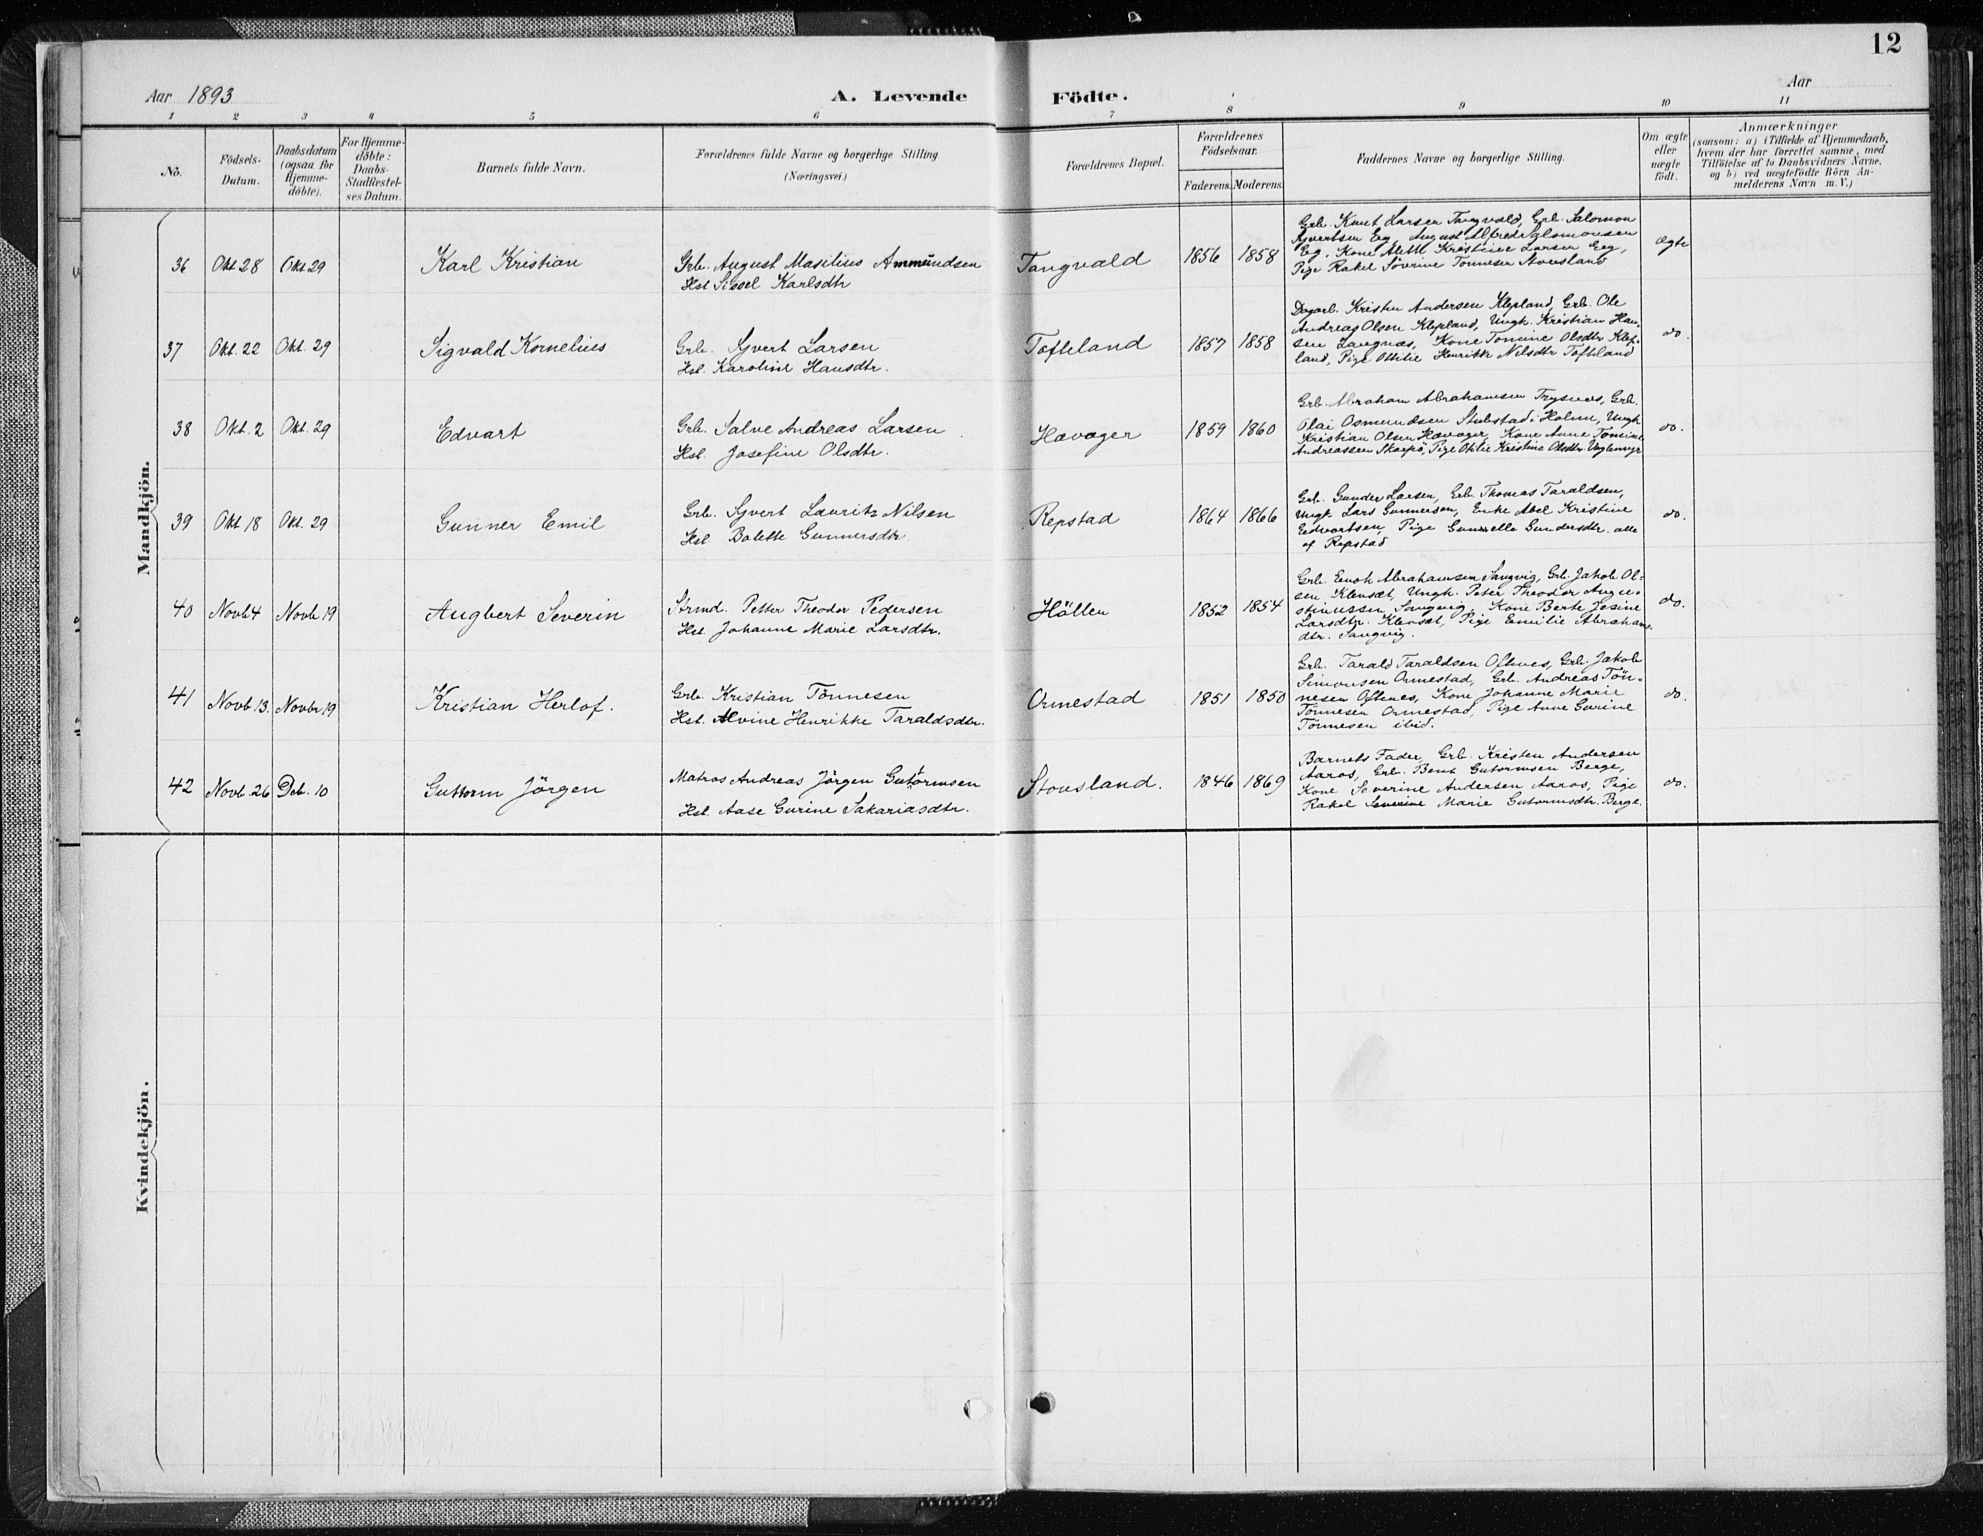 12
Aar 1893
A. Levende Födte.
Aar
1 2 3 4 5 6 7 8 9 10 11
No.
Födsels-Datum.
Daabsdatum (ogsaa for Hjemme-döbte).
For Hjemme-döbte: Daabs-Stadfæstel-ses Datum.
Barnets fulde Navn.
Forældrenes fulde Navne og borgerlige Stilling.
(Næringsvei.)
Forældrenes Bopæl.
Forældrenes Födselsaar.
Faderens. Moderens.
Faddernes Navne og borgerlige Stilling.
Om ægte eller uægte födt.
Anmærkninger
(saasom: a) i Tilfælde af Hjemmedaab,
hvem der har forrettet samme, med
Tilföielse af to Daabsvidners Navne,
og b) ved uægtefödte Börn An-
melderens Navn m. V.)
Mandkjön.
36 Okt 28 Okt 29 Karl Kristian
Grb. August Masilius Ammundsen
Hst. Sissel Karlsdtr
Tangvald 1856 1858
Grb. Knut Larsen Tangvald, Grb. Salomon
Syvertsen Eg, August Alfred Salomonsen
Eg, Kone Alette Kristine Larsen Eg,
Pige Rakel Severine Tönnesen Aversland
ægte
37 Okt. 22 Okt. 29 Sigvald Kornelius
Grb. Syvert Larsen
Hst. Karoline Hansdtr.
Tofteland 1857 1858
Dagarb. Kristen Andersen Klepland, Grb. Ole
Andreas Olsen Klepland, Ungk. Kristian Han-
sen Langnæs, Kone Tomine Olsdtr Klep-
land, Pige Ottilie Henrikke Nilsdtr Tofteland
do.
38 Okt. 2 Okt. 29 Edvart
Grb. Salve Andreas Larsen
Hst. Josefine Olsdtr.
Hævager 1859 1860
Grb. Abraham Abrahamsen Trysnes, Grb.
Olai Osmundsen Stubstad i Holum, Ungk
Kristian Olsen Hævager, Kone Anne Tomine
Andreassen Skarpö, Pige Otilie Kristine Olsdtr.
do.
39 Okt 18 Okt. 29 Gunner Emil
Grb. Syvert Lauritz Nilsen
Hst. Bolette Gunnersdtr
Repstad 1864 1866
Grb. Gunder Larsen, Grb. Thomas Taraldsen,
Ungk Lars Gunnersen, Enke Abel Kristine
Edvartsen, Pige Gunelle Gundersdtr. alle
af Repstad
do.
40 Novb 4 Novb 19 Augbert Severin
Strmd. Petter Theodor Pedersen
Hst. Johanne Marie Larsdtr.
Höllen 1852 1854
Grb. Enok Abrahamsen Sangvig, Grb. Jakob Ol-
sen Klevsæt, Ungk. Peter Theodor Augu-
stinussen, Sangvig, Kone Berte Jesine
Larsdtr. Klevsæt, Pige Emilie Abrahams-
dtr. Sangvig.
do.
41 Novb 13. Novbr 19 Kristian Herlof.
Grb. Kristian Tönnesen
Hst. Alvine Henrikke Taraldsdtr.
Ormestad 1851 1850
Grb. Tarald Taraldsen Oftenes, Grb. Jakob
Simonsen Ormestad, Grb. Andreas Tön-
nesen Oftenes, Kone Johanne Marie
Tönnesen Ormestad, Pige Anne Gurine
Tönnesen ibid.
do.
42 Novb. 26 Deb. 10 Guttorm Jörgen
Matros Andreas Jörgen Gutormsen
Hst. Aase Gurine Sakariasdtr.
Stousland. 1846 1869
Barnets Fader, Grb. Kristen Andersen
Aaros, Grb. Bent Gutormsen Berge,
Kone Severine Andersen Aaros, Pige
Rakel Severine Marie Gutormsdtr. Berge.
do.
Kvindekjön.